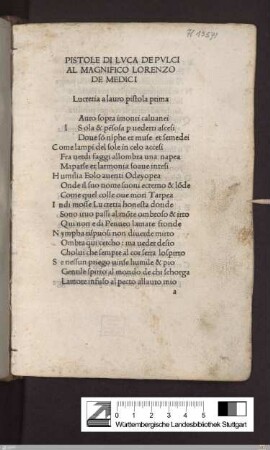 PISTOLE DI LVCA DE PVLCI
AL MAGNIFICO LORENZO
DE MEDICI
Lucretia a lauro pistola prima
Auro sopra imonti caluanei
I Sola & pẽsosa
Doue sõ niphe et muse et semedei
Come lampi del sole in celo accesi
Fra uerdi faggi allombra una napea
et larmonia soaue intesi
Humilia Eolo auenti Odeyopea
Onde il suo nome suoni eterno & lõde
Come quel colle oue morì Tarpea
Indi mosse Lucretia honesta donde
Sono uuo passi al mõte ombroso & irto
Qui non e di Peneo lamate fronde
Nympha rispuosi non diuerde mirto
Ombra qui cercho: ma ueder desio
Cholui che sempre al cor serra lospirto
Se nessun priego uinse humile & pio
Gentile spirto al mondo de chi schorga
Lamore infuso al pecto allauro mio
a
0 1 2 3 4 5
cm
Württembergische Landesbibliothek Stuttgart